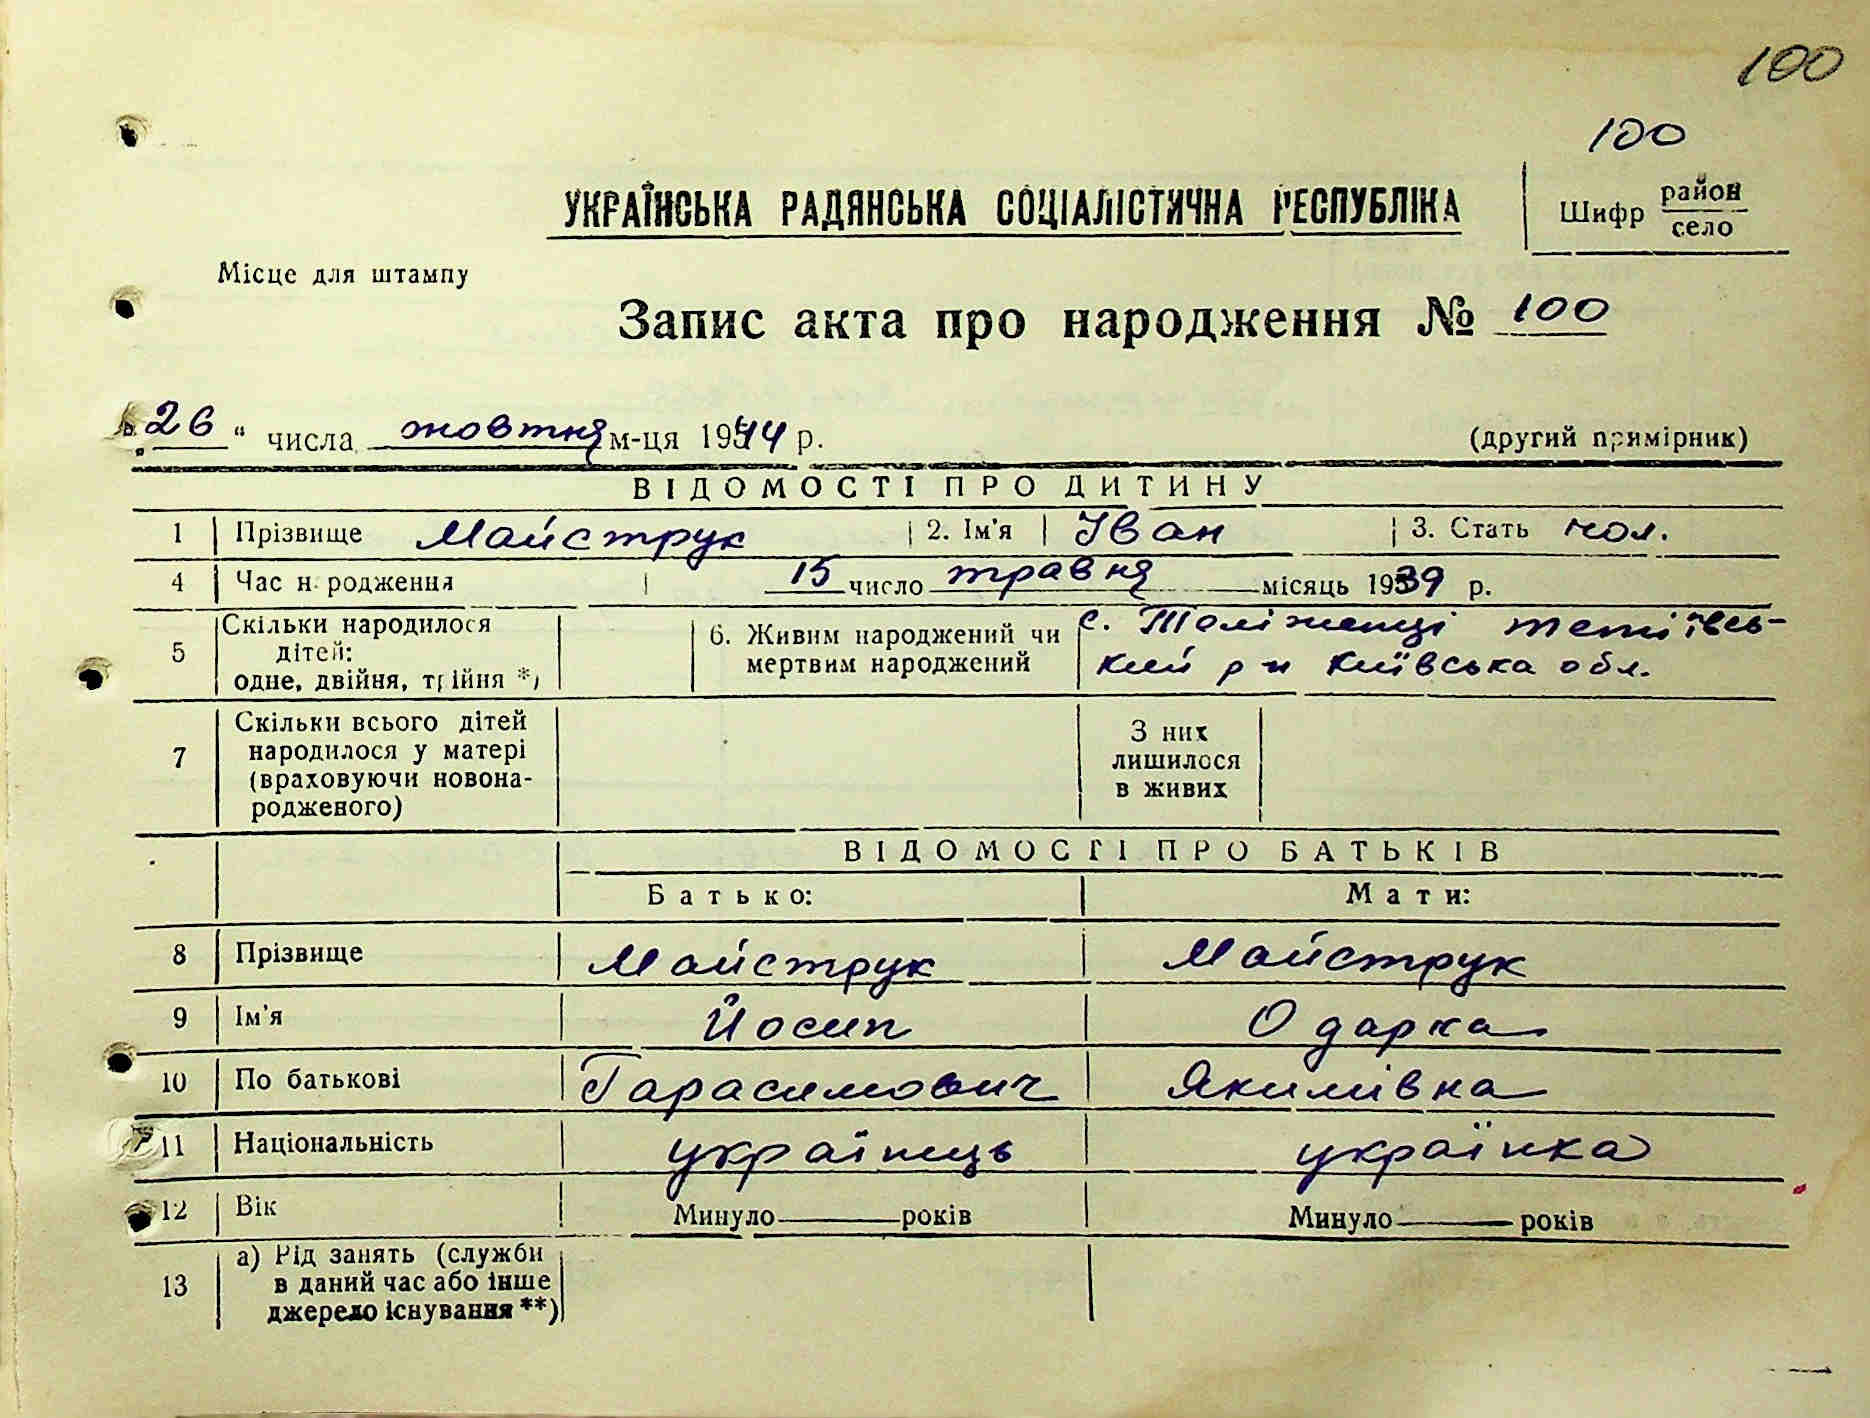 100
100
УКРАЇНСЬКА РАДЯНСЬКА СОЦІАЛІСТИЧНА РЕСПУБЛІКА
Шифр район
село
Місце для штампу
Запис акта про народження № 100
„26“ числа жовтня м-ця 1944 р. (другий примірник)
ВІДОМОСТІ ПРО ДИТИНУ
1 Прізвище Майструк 2. Ім'я Іван 3. Стать чол.
4 Час народження 15 число травня місяць 1939 р.
5 Скільки народилося
дітей:
одне, двійня, трійня *)
6. Живим народжений чи
мертвим народжений
с. Теліженці тетіївсь-
кий р-н Київська обл.
7 Скільки всього дітей
народилося у матері
(враховуючи новона-
родженого)
З них
лишилося
в живих
ВІДОМОСТІ ПРО БАТЬКІВ
Батько: Мати:
8 Прізвище Майструк Майструк
9 Ім'я Йосип Одарка
10 По батькові Гарасимович Якимівна
11 Національність українець українка
12 Вік Минуло ___ років Минуло ___ років
13 а) Рід занять (служби
в даний час або інше
джерело існування **)